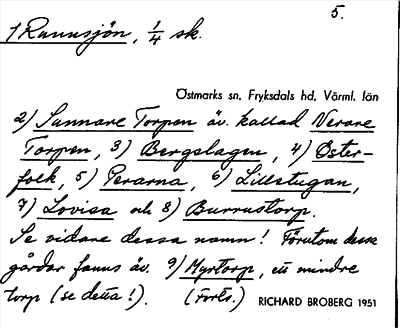 5.
1 Rannsjön, 1/4 sk.
Östmarks sn, Fryksdals hd, Värml. län
2) Sunnare Torpen äv. kallad Nerare
Torpen, 3) Bergslagen, 4) Öster-
folk, 5) Perarna, 6) Lillstugan,
7) Lovisa och 8) Burrustorp.
Se vidare dessa namn! Förutom dessa
gårdar fanns äv. 9) Myrtorp, ett mindre
torp (se detta!). (Forts.) RICHARD BROBERG 1951